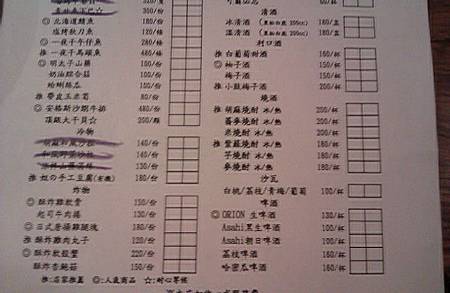 300/份
◎北海道鯖魚 180/條
鹽烤秋刀魚 120/條
◎一夜干午仔魚 180/份
推 一夜干馬頭魚 180/份
◎明太子山藥 150/份
奶油綜合菇 150/份
蛤蜊絲瓜 150/份
推 帶皮玉米筍 80/份
◎安格斯沙朗牛排 480/份
頂級大干貝☆ 200/顆
冷物
140/份
140/份
130/份
推 奴の手工豆腐 180/份
炸物
◎酥炸雞軟骨 150/份
起司牛肉捲 130/份
◎日式唐揚雞腿塊 180/份
推 酥炸雞肉丸子 120/份
◎酥炸軟殼蟹 220/份
酥炸杏鮑菇 150/份
推:店家推薦 ◎:人氣商品 ☆:耐心等候
清酒
冰清酒 180/壺
溫清酒 180/壺
利口酒
推 白葡萄耐酒 160/杯
◎柚子酒 150/杯
梅子酒 150/杯
推 小鼓梅子酒 200/杯
燒酒
推 胡麻燒酎 冰/熱 200/杯
蕎麥燒酎 冰/熱 160/杯
米燒酎 冰/熱 160/杯
推 紫蘇燒酎 冰/熱 200/杯
芋燒酎 冰/熱 160/杯
麥燒酎 冰/熱 160/杯
沙瓦
白桃/荔枝/青梅/葡萄 100/杯
啤酒
◎ORION 生啤酒 130/杯
Asahi黑生啤酒 160/杯
Asahi朝日啤酒 160/杯
荔枝啤酒 160/杯
哈密瓜啤酒 160/杯